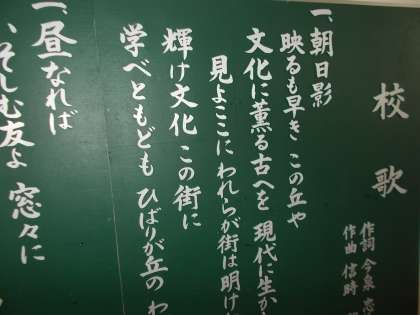 校歌
作詞 今泉 忠
作曲 信時
一、朝日影
映るも早き この丘や
文化に薫る古へを 現代に生か
見よここに われらが街は明け
輝け文化 この街に
学べともども ひばりが丘の わ
一、昼なれば
いそしむ友よ 窓々に